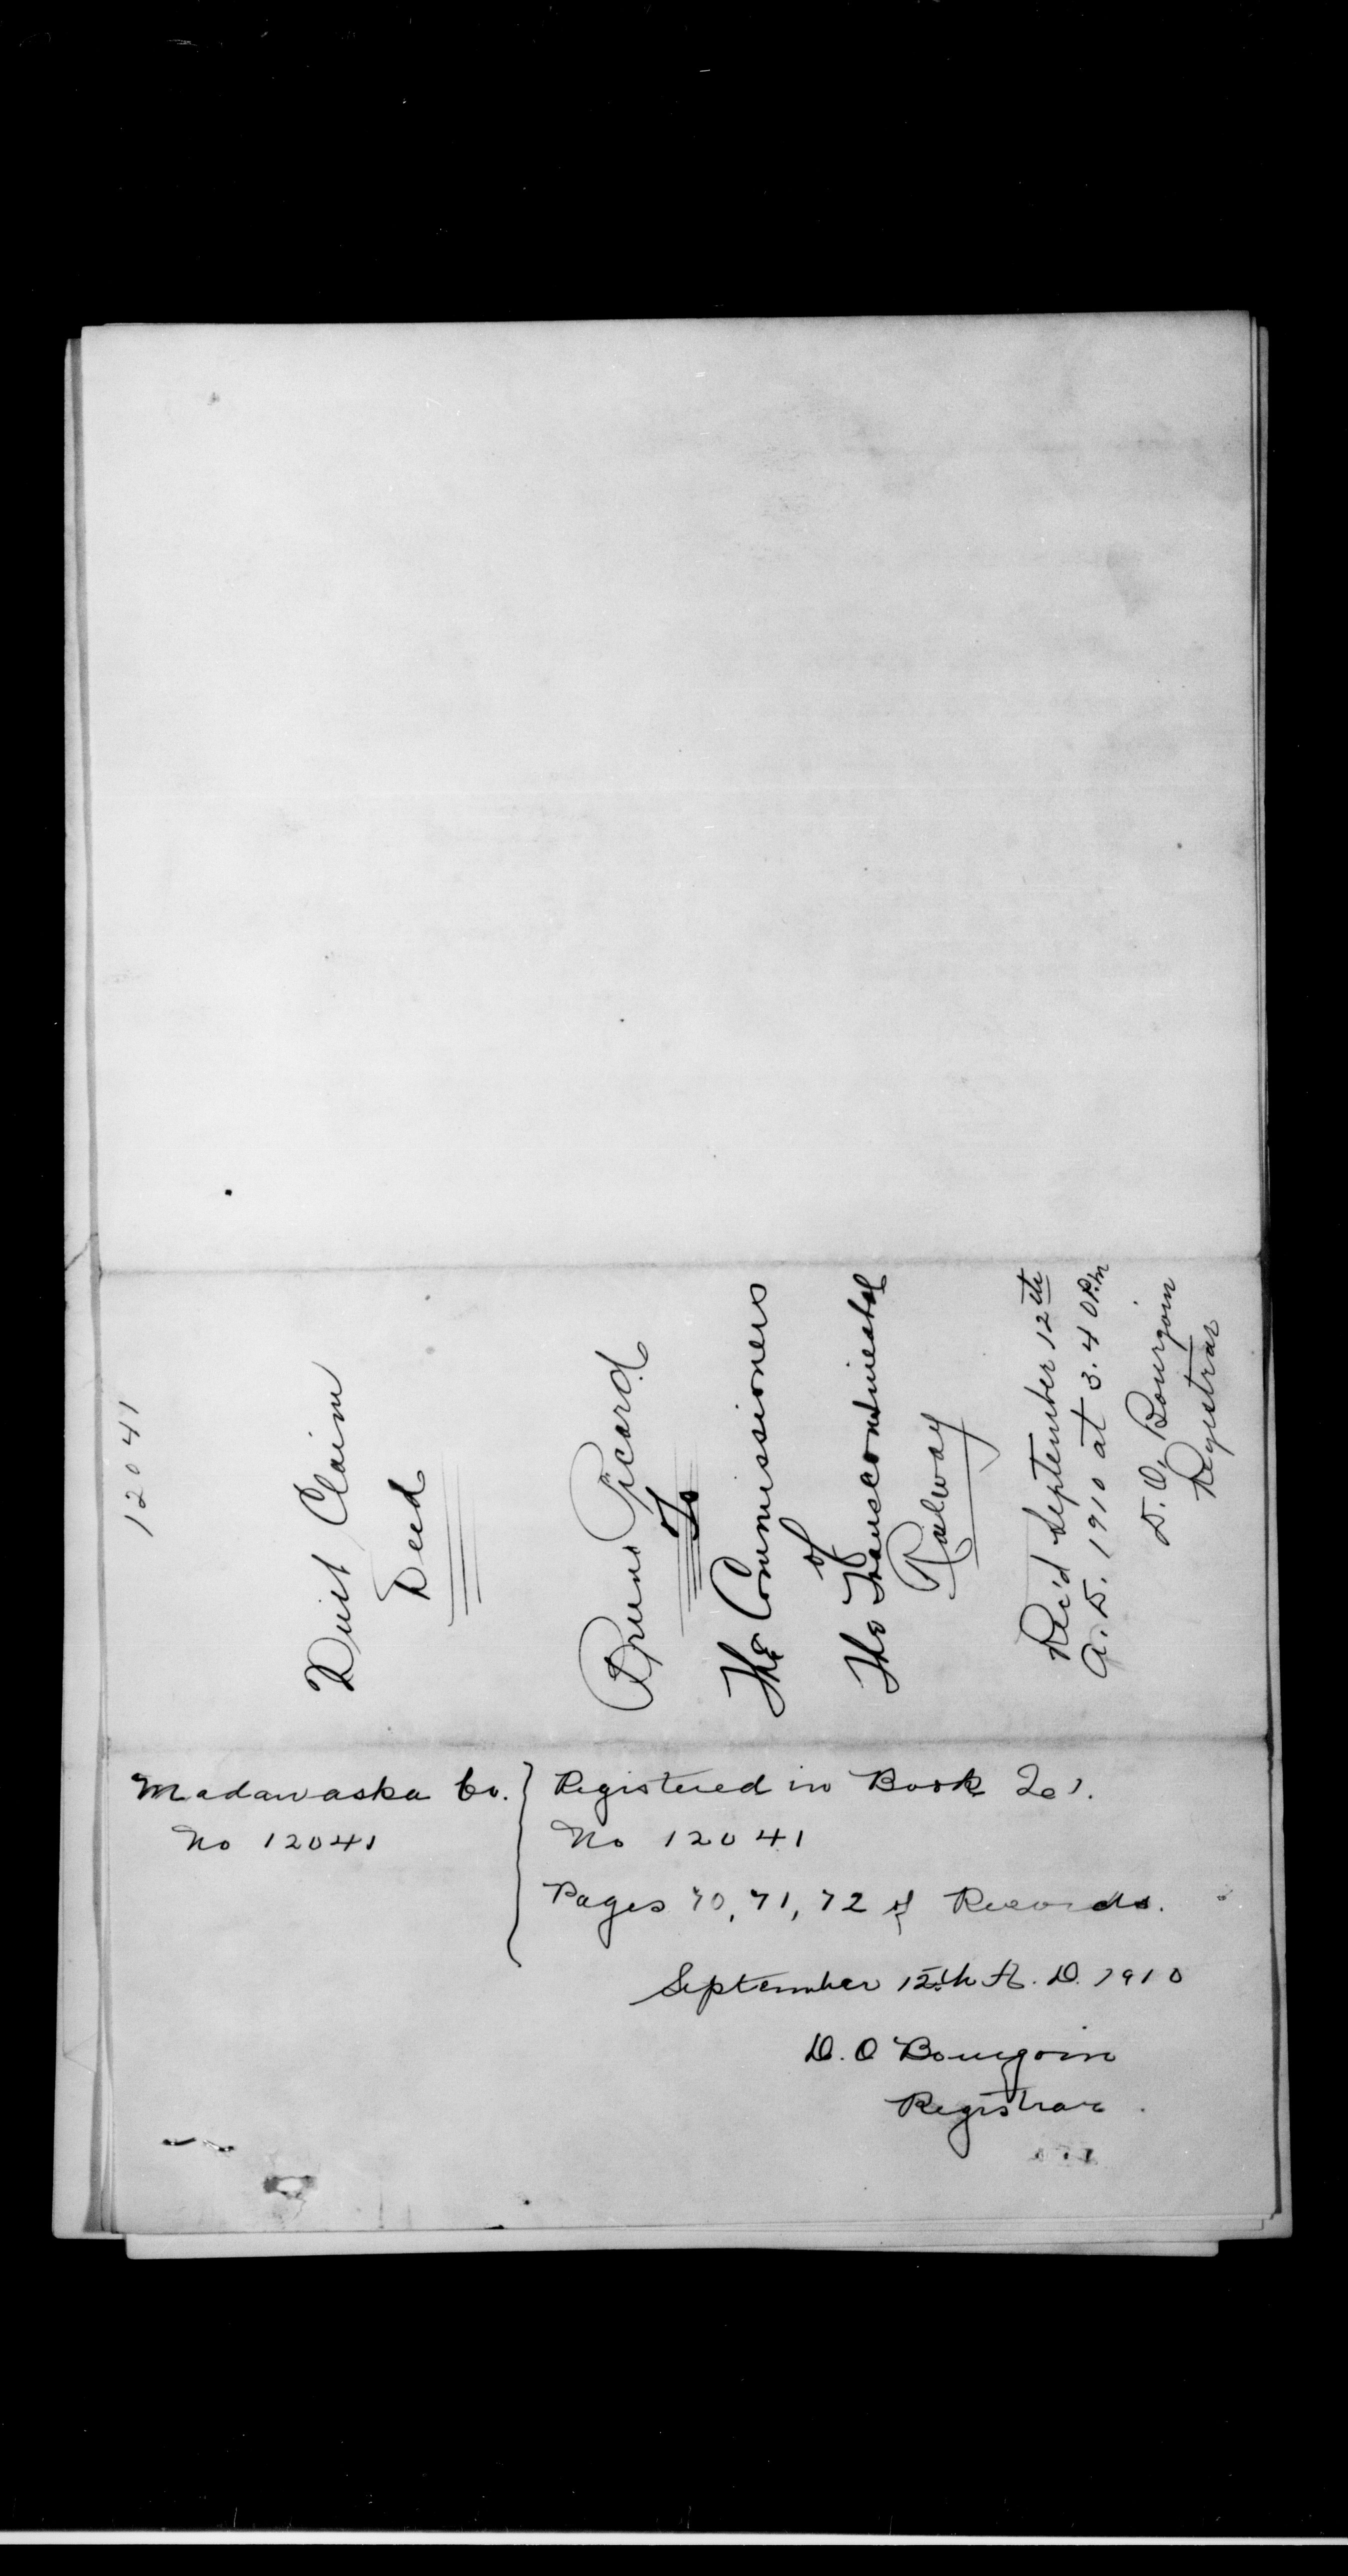 12041
Quit Claim
Deed
Bruno Picard
To
The Commissioners
of
The Transcontinental
Railway
Rec'd September 12th
A.D. 1910 at 3.40 P.m
D.O. Bourgoin
Registrar
Madawaska Co.
No 12041
Registered in Book
No 12041
Pages 70, 71, 72 of Records.
September 12th A.D. 1910
D.O Bourgoin
Registrar.